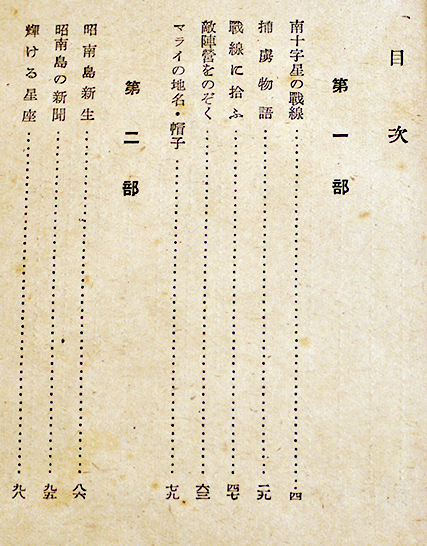 目次
第一部
南十字星の戰線……四
捕虜物語……二九
戰線に拾ふ……四七
敵陣營をのぞく……六三
マライの地名・帽子……七九
第二部
昭南島新生……八六
昭南島の新聞……九五
輝ける星座……九八